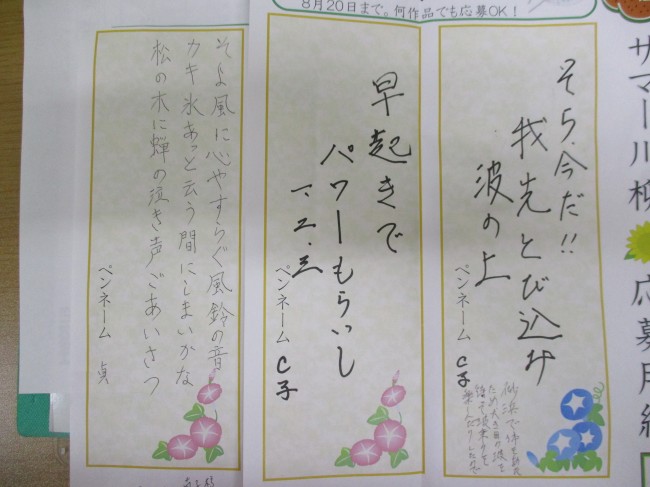 8月20日まで。何作品でも応募OK!
サマー川柳
応募用紙
そら今だ!!
我先とび込み
波の上
ペンネーム C子
早起きで
パワーもらいし
一.二.三
ペンネーム C子
そよ風に心やすらぐ風鈴の音
カキ氷あっと云う間にしまいかな
松の木に蝉の泣き声ごあいさつ
ペンネーム 貞